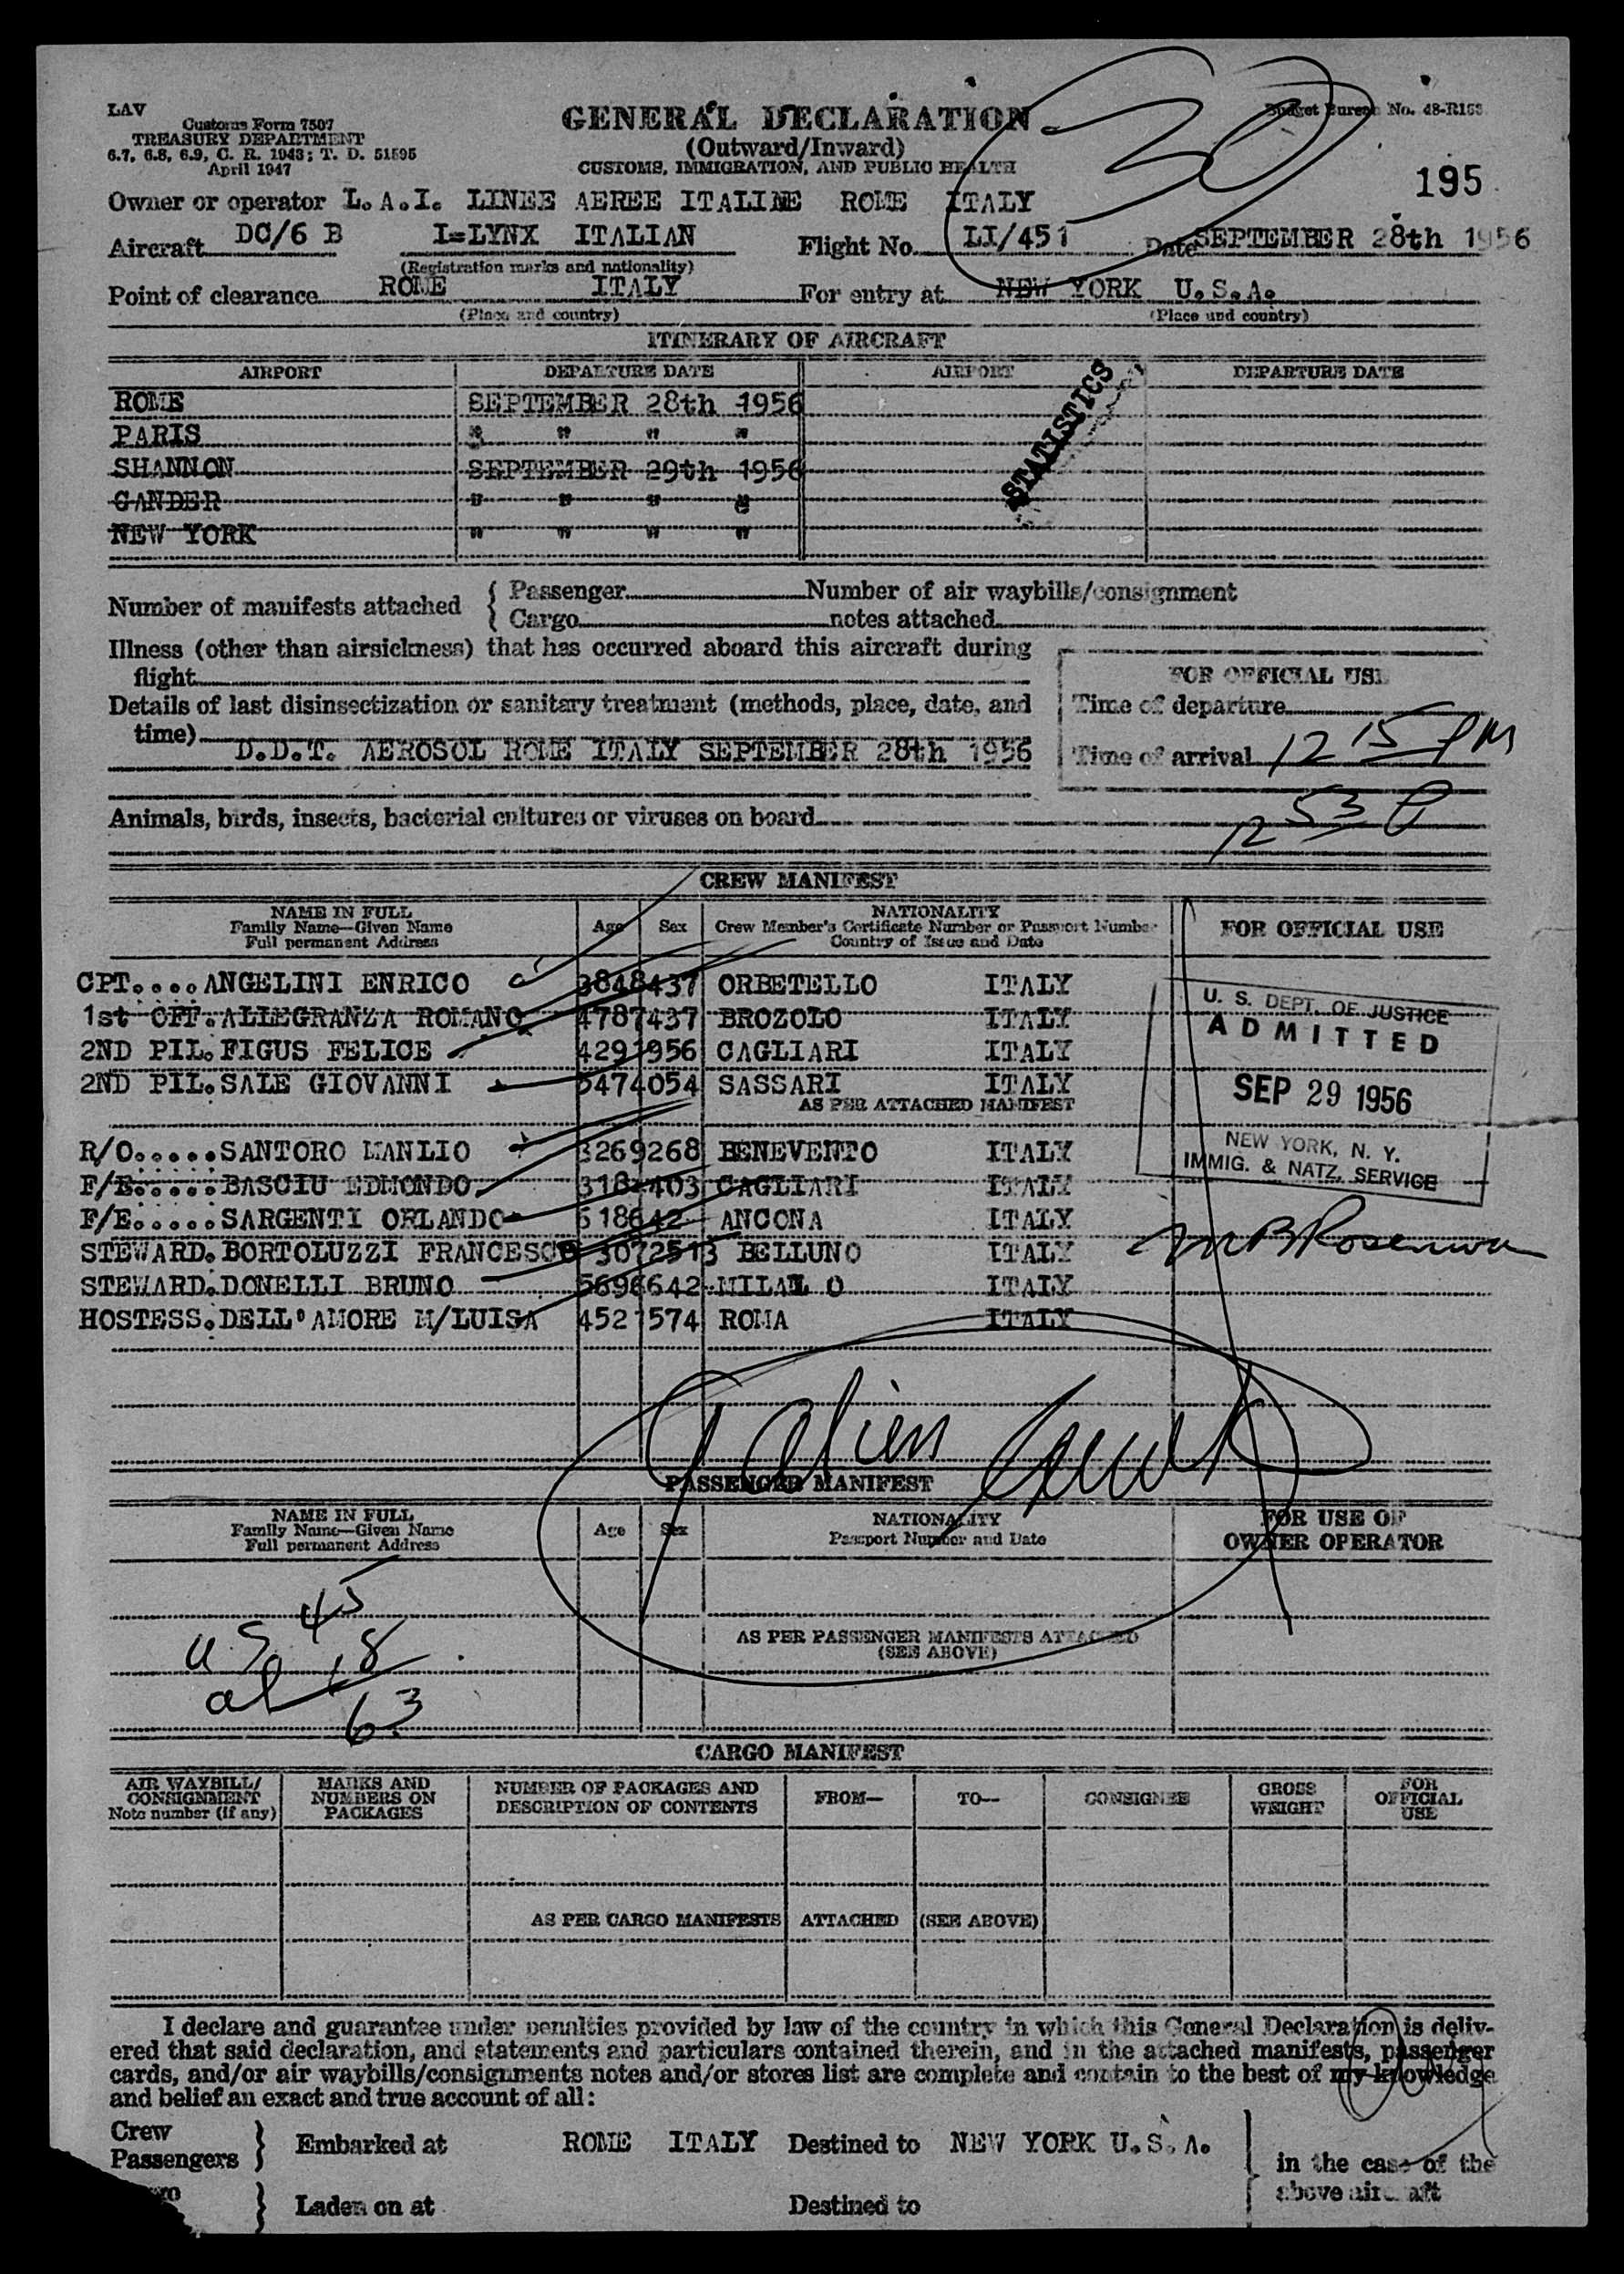 LAV
Customs Form 7507
TREASURY DEPARTMENT
6.7, 6.8, 6.9, C. R. 1943; T. D. 51595
April 1947
GENERAL DECLARATION
(Outward/Inward)
CUSTOMS, IMMIGRATION, AND PUBLIC HEALTH
Budget Bureau No. 48-R155
30
195
Owner or operator L.A.I. LINEE AEREE ITALINE ROME ITALY
Aircraft DC/6 B I=LYNX ITALIAN Flight No. LI/451 Date SEPTEMBER 28th 1956
(Registration marks and nationality)
Point of clearance ROME ITALY For entry at NEW YORK U.S.A.
(Place and country) (Place and country)
ITINERARY OF AIRCRAFT
AIRPORT DEPARTURE DATE AIRPORT DEPARTURE DATE
ROME SEPTEMBER 28th 1956
PARIS " " " "
SHANNON SEPTEMBER 29th 1956
GANDER " " " "
NEW YORK " " " "
STATISTICS
Number of manifests attached { Passenger Number of air waybills/consignment
{ Cargo notes attached
Illness (other than airsickness) that has occurred aboard this aircraft during
flight
Details of last disinsectization or sanitary treatment (methods, place, date, and
time)
D.D.T. AEROSOL ROME ITALY SEPTEMBER 28th 1956
FOR OFFICIAL USE
Time of departure
Time of arrival 12 15 PM
12 53 P
Animals, birds, insects, bacterial cultures or viruses on board
CREW MANIFEST
NAME IN FULL
Family Name—Given Name
Full permanent Address
Age Sex
NATIONALITY
Crew Member's Certificate Number or Passport Number
Country of Issue and Date
FOR OFFICIAL USE
CPT....ANGELINI ENRICO 3848437 ORBETELLO ITALY
1st OFF.ALLEGRANZA ROMANO 4787437 BROZOLO ITALY
2ND PIL.FIGUS FELICE 4291956 CAGLIARI ITALY
2ND PIL.SALE GIOVANNI 5474054 SASSARI ITALY
AS PER ATTACHED MANIFEST
R/O.....SANTORO MANLIO 3269268 BENEVENTO ITALY
F/E.....BASCIU EDMONDO CAGLIARI ITALY
F/E.....SARGENTI ORLANDO 618642 ANCONA ITALY
STEWARD.BORTOLUZZI FRANCESCO 3072513 BELLUNO ITALY
STEWARD.DONELLI BRUNO 5696642 MILAN O ITALY
HOSTESS.DELL'AMORE M/LUISA 4521574 ROMA ITALY
U. S. DEPT. OF JUSTICE
ADMITTED
SEP 29 1956
NEW YORK, N. Y.
IMMIG. & NATZ. SERVICE
PASSENGER MANIFEST
NAME IN FULL
Family Name—Given Name
Full permanent Address
Age Sex
NATIONALITY
Passport Number and Date
FOR USE OF
OWNER OPERATOR
AS PER PASSENGER MANIFESTS ATTACHED
(SEE ABOVE)
US 45
al 18
63
CARGO MANIFEST
AIR WAYBILL/
CONSIGNMENT
Note number (if any)
MARKS AND
NUMBERS ON
PACKAGES
NUMBER OF PACKAGES AND
DESCRIPTION OF CONTENTS
FROM— TO— CONSIGNEE
GROSS
WEIGHT
FOR
OFFICIAL
USE
AS PER CARGO MANIFESTS ATTACHED (SEE ABOVE)
I declare and guarantee under penalties provided by law of the country in which this General Declaration is deliv-
ered that said declaration, and statements and particulars contained therein, and in the attached manifests, passenger
cards, and/or air waybills/consignments notes and/or stores list are complete and contain to the best of my knowledge
and belief an exact and true account of all:
Crew
Passengers } Embarked at ROME ITALY Destined to NEW YORK U.S.A.
in the case of the
above aircraft
} Laden on at Destined to